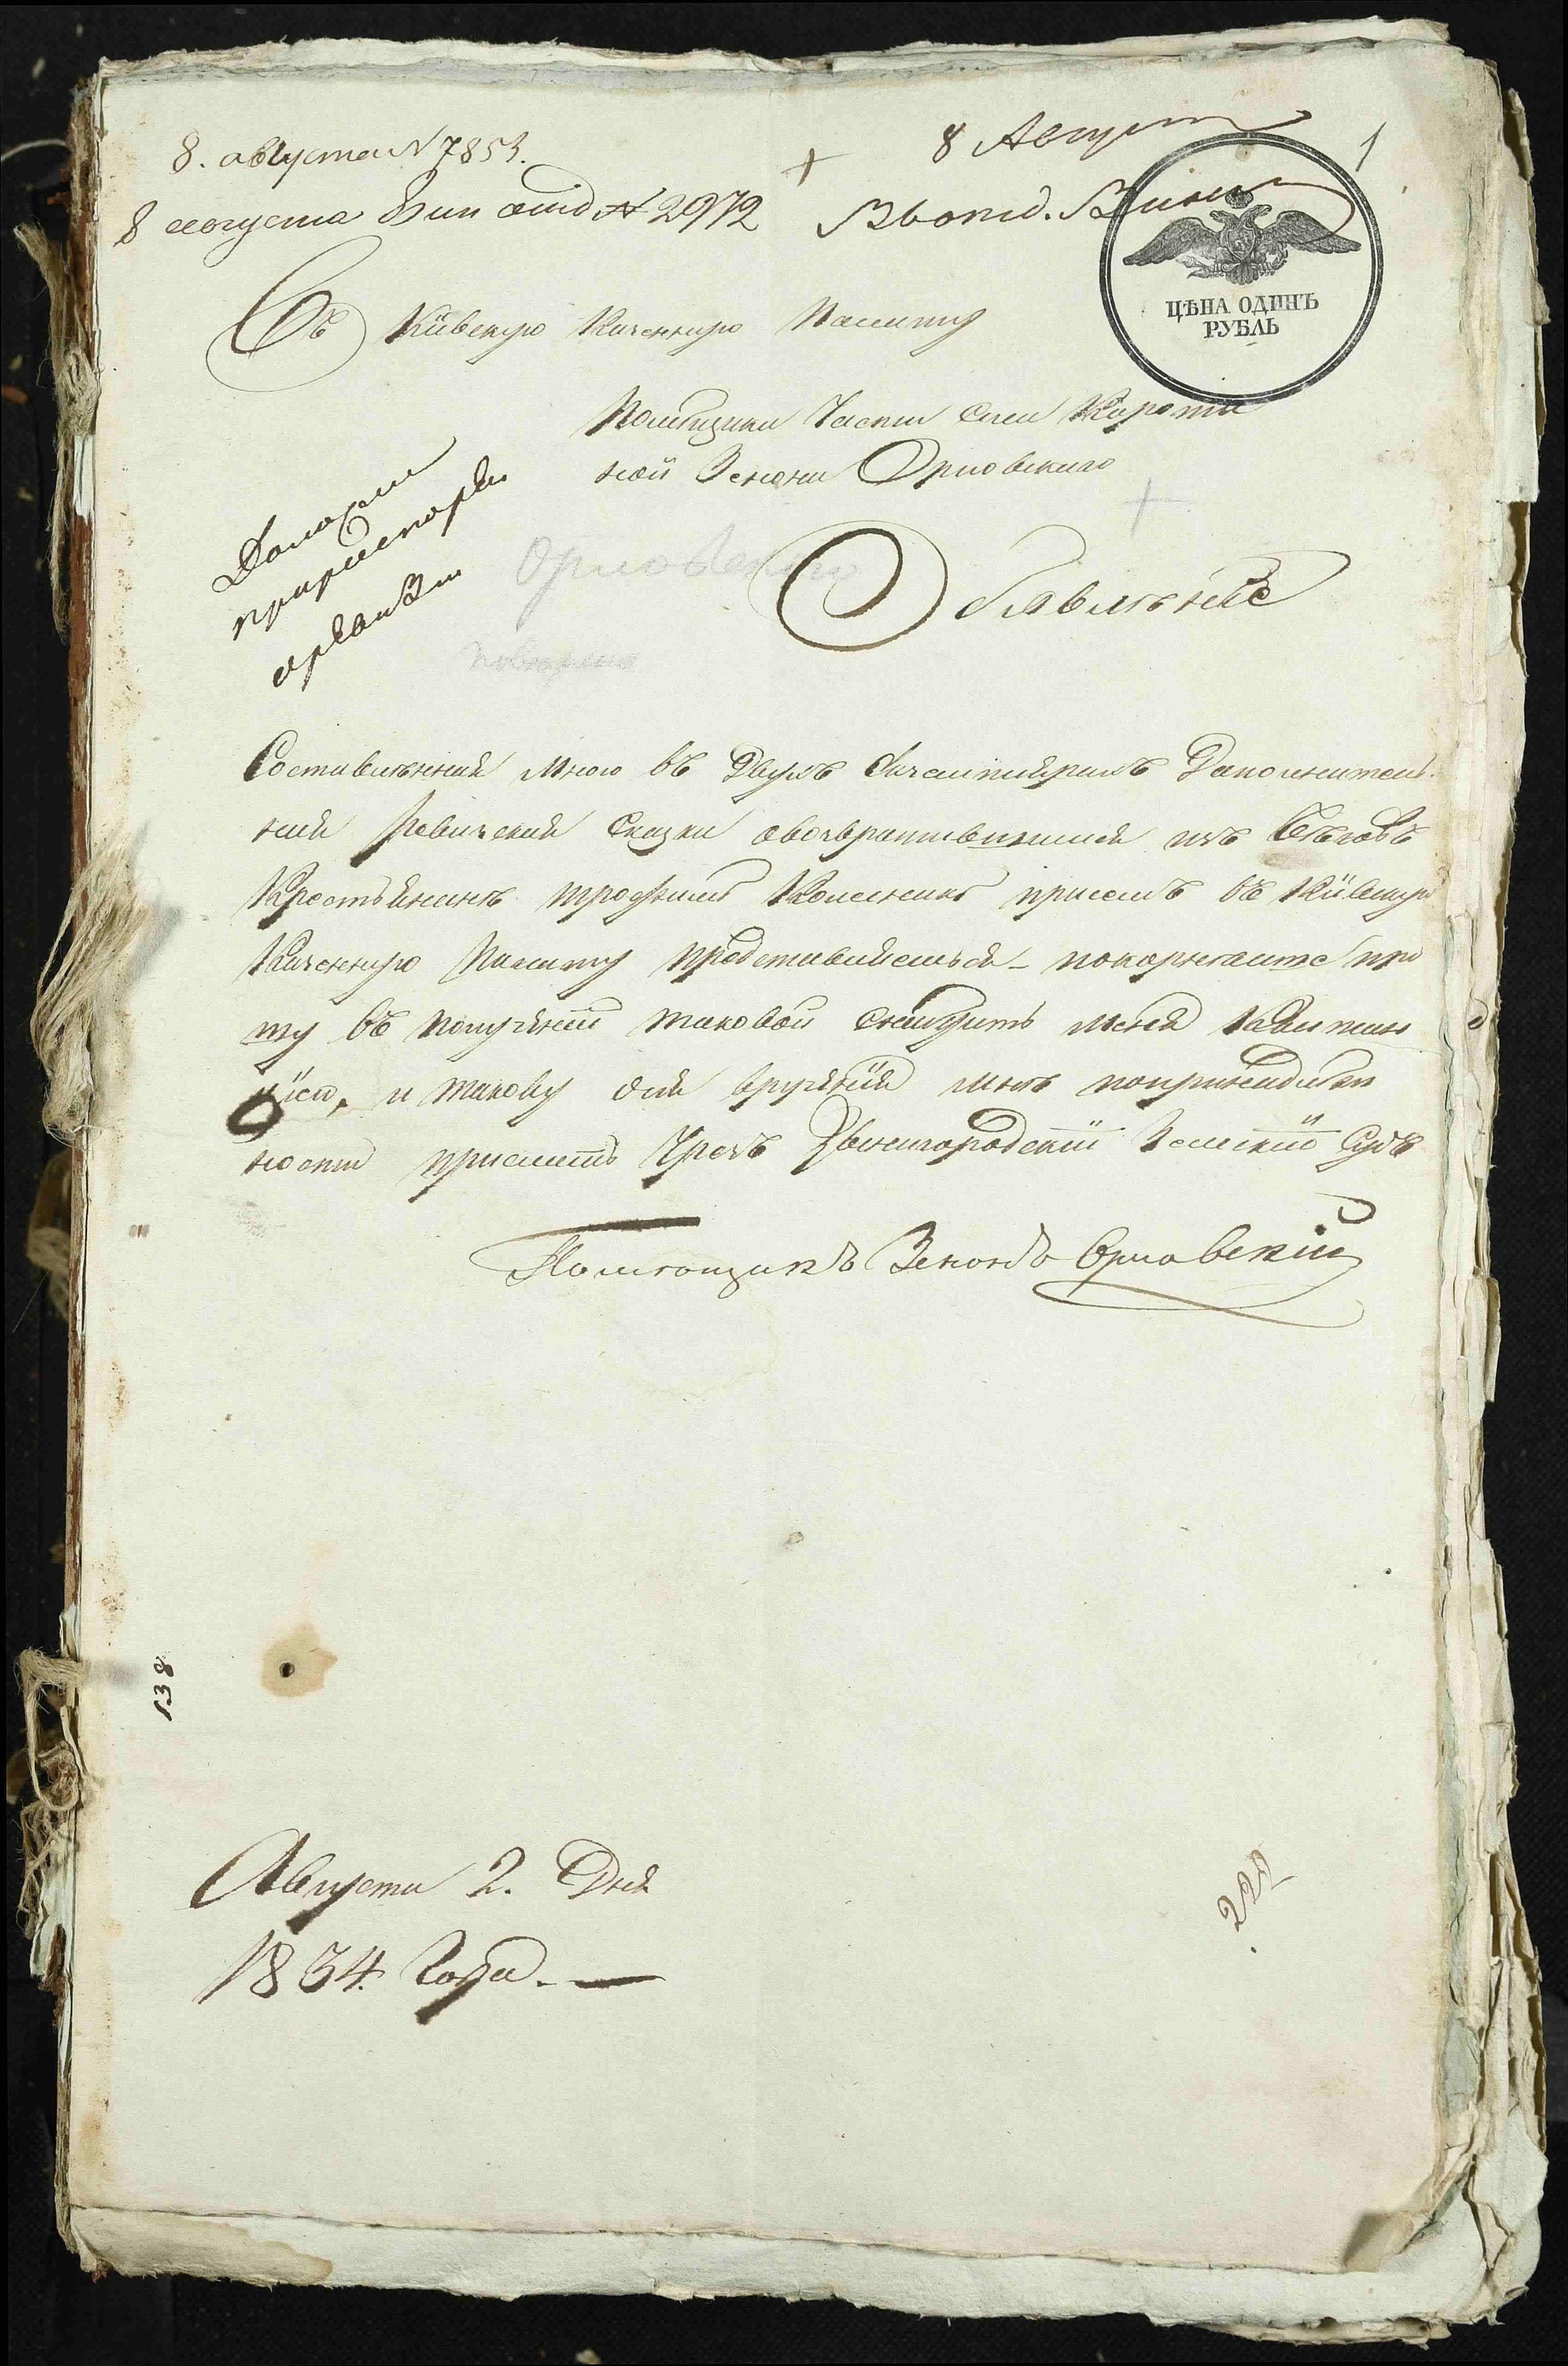 8. августа N 7853.
8 августа Вин отд № 2972
8 Август
Въ отд. Винн
1
ЦѢНА ОДИНЪ
РУБЛЬ
Въ Кіевскую Казенную Палату
Помѣщика Части Села
ной Зенона Орловскаго
Орловскаго
Обявленіе
Составленная Мною въ Двухъ Дополнитель
ная Ревизская Сказка овозвратившимся изъ Бѣговъ
Крестьянинѣ Трофимѣ при семъ въ Кіевскую
Казенную Палату Представляя покорнейше про
шу въ получении таковой снабдить меня Квитан
ціею, и такову для врученія мнѣ попринадлеж
ности прислать Чрезъ Звенигородскій Земскій Судъ
Помѣщикъ Зенонъ Орловскій
138
Августа 2. Дня
1834 Года.